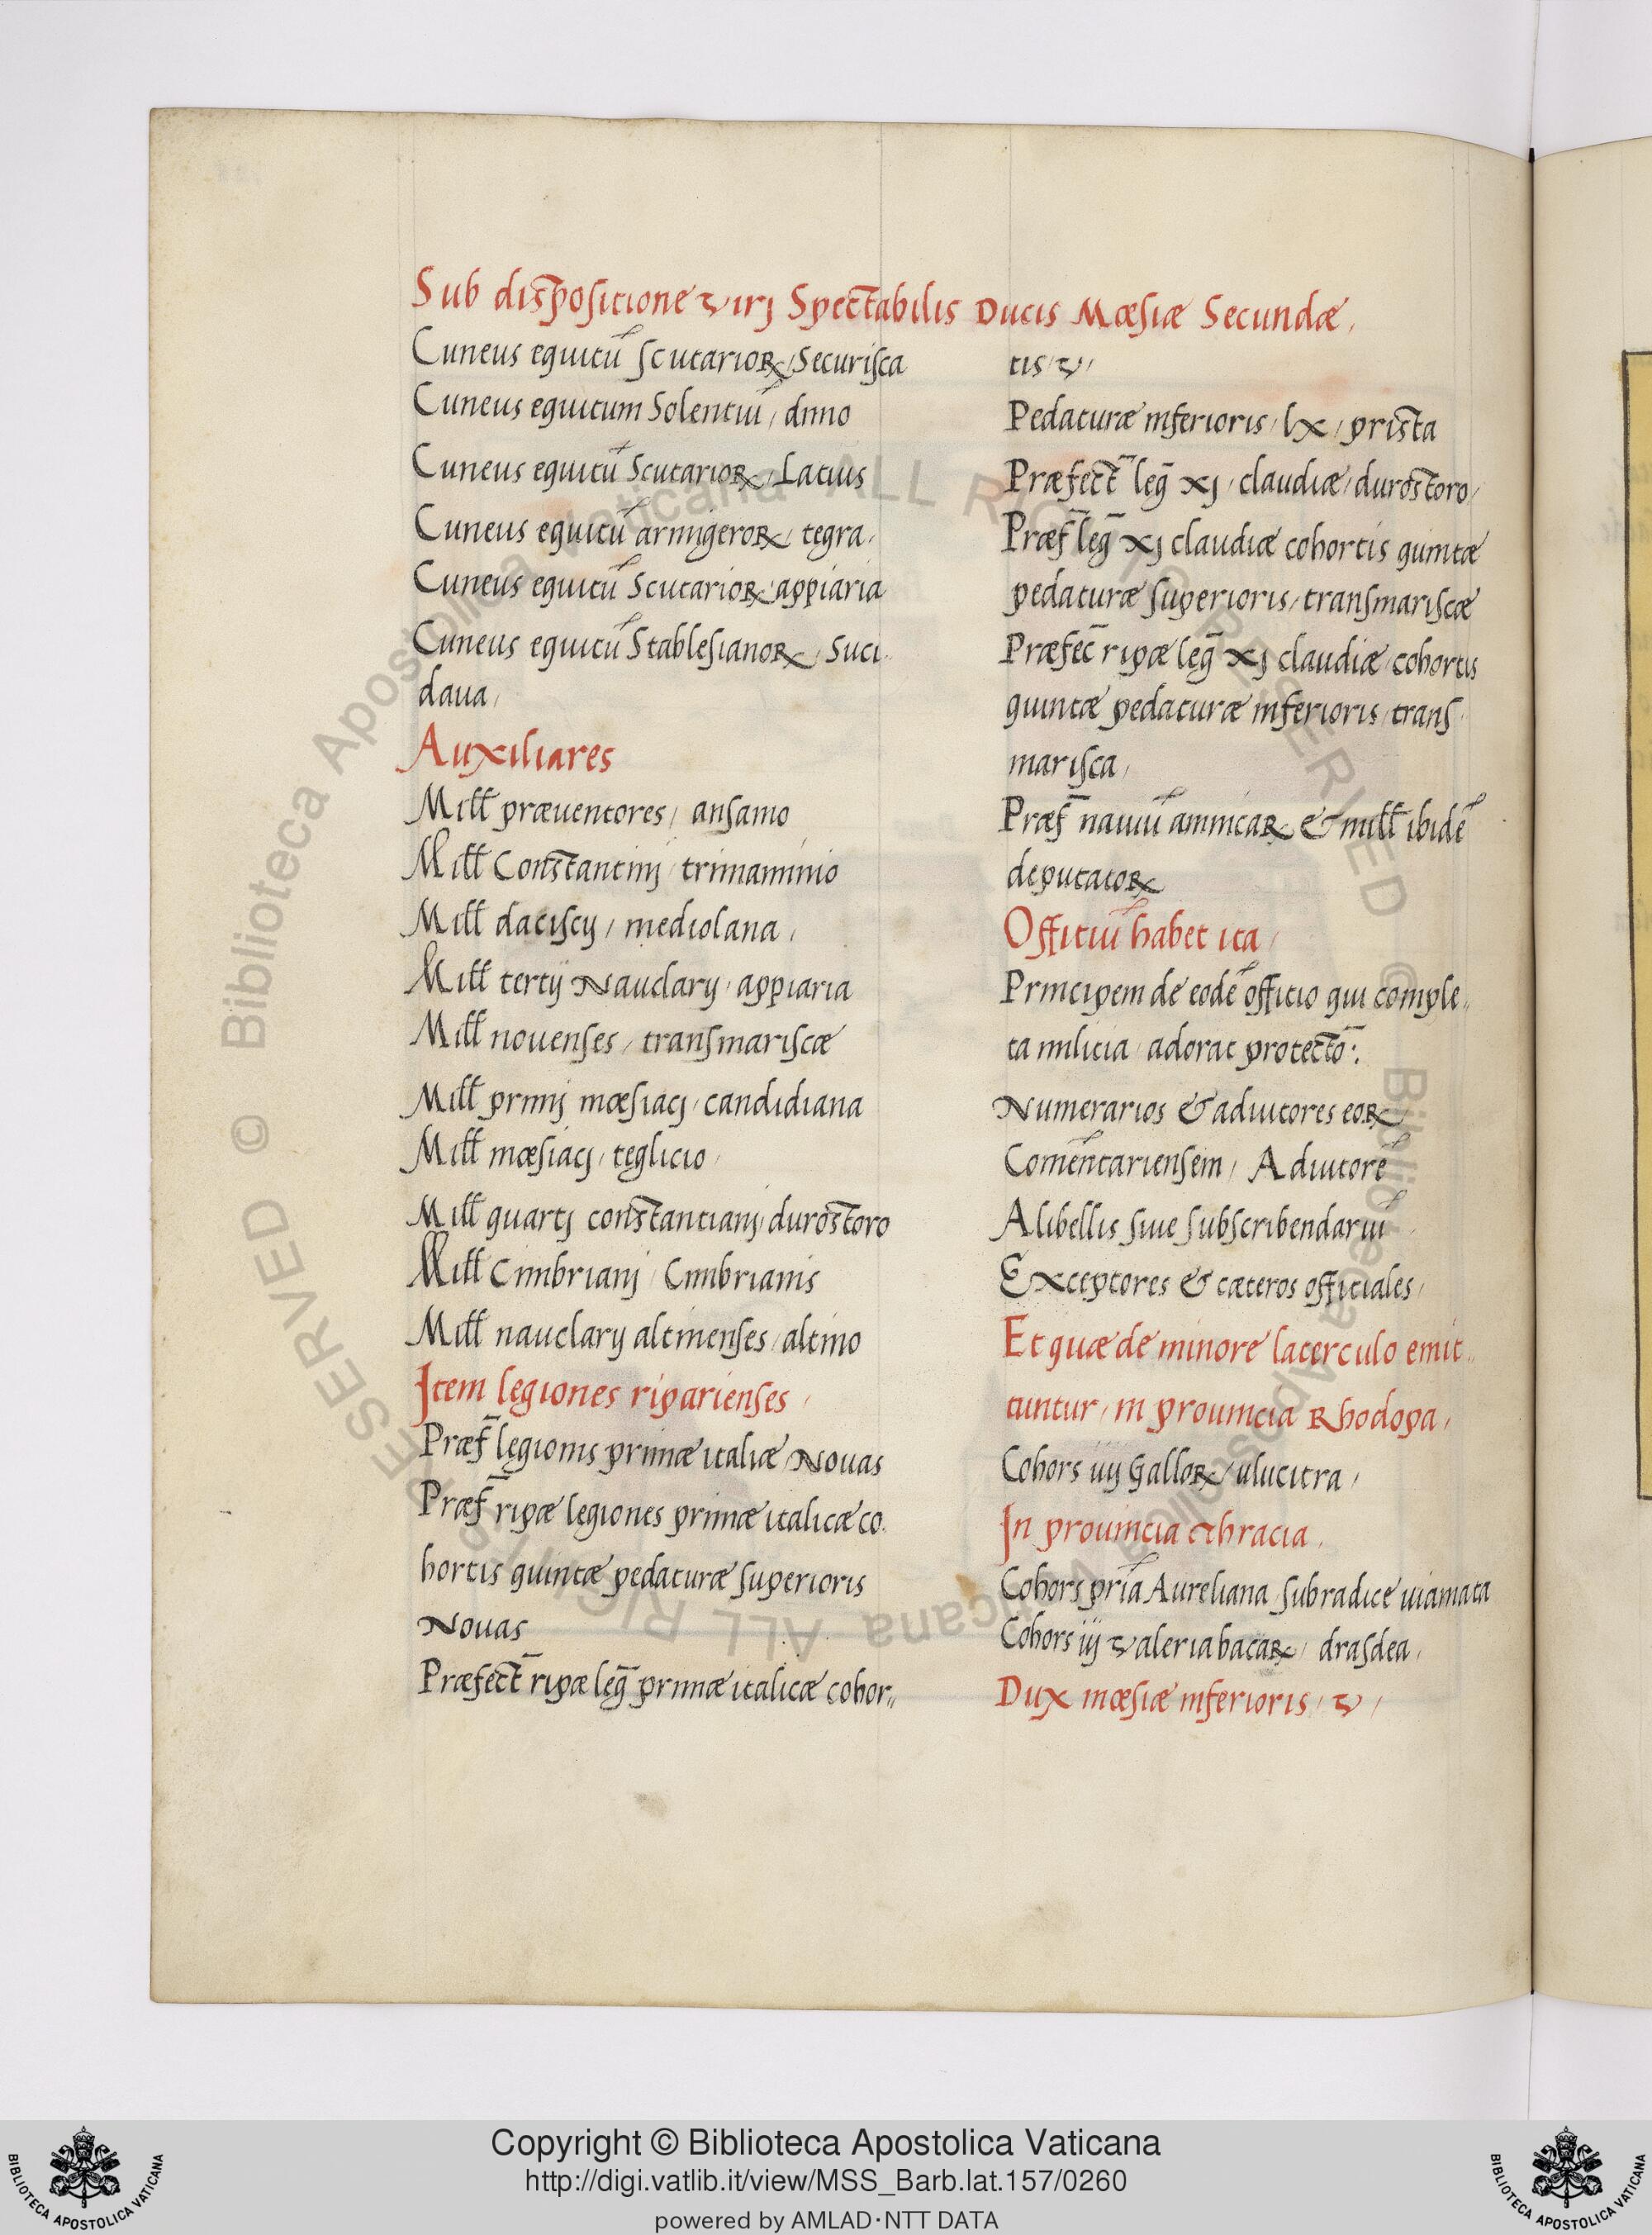 Sub dispositione virj Spectabilis Ducis Mœsiæ Secundæ,
Cuneus equitū scutarioꝝ, Securisca
Cuneus equitum Solentiū, dnno
Cuneus equitū Scutarioꝝ, Latius
Cuneus equitū armigeroꝝ, tegra,
Cuneus equitū Scutarioꝝ, appiaria
Cuneus equitū Stablesianoꝝ, Suci-
daua,
Auxiliares
Mill̄ præuentores, ansamo
Mill̄ Constantinj, trimamnio
Mill̄ daciscij, mediolana,
Mill̄ tertij Nauclarij, appiaria
Mill̄ nouenses, transmariscæ
Mill̄ primj mœsiacj, candidiana
Mill̄ mœsiacj, teglicio,
Mill̄ quartj constantianj, durostoro
Mill̄ Cimbrianj, Cimbrianis
Mill̄ nauclarij altinenses, altino
Item legiones riparienses,
Præf̄ legionis primæ italiæ, Nouas
Præf̄ ripæ legiones primæ italicæ co-
hortis quintæ pedaturæ superioris
Nouas
Præfect̄ ripæ leḡ primæ italicæ cohor„
tis, v,
Pedaturæ inferioris, lx, prista
Præfect̄ leḡ xj, claudiæ, durostoro,
Præf̄ leḡ xj claudiæ cohortis quintæ
pedaturæ superioris, transmariscæ
Præfec̄ ripæ leḡ xj claudiæ, cohortis
quintæ pedaturæ inferioris, trans-
marisca,
Præf̄ nauiū amnicaꝝ & mill̄ ibidē
deputatoꝝ
Offitiū habet ita,
Principem de eodē offitio qui comple„
ta militia, adorat protectō:,
Numerarios & adiutores eoꝝ,
Comēntariensem, Adiutorē
A libellis siue subscribendariū
Exceptores & cæteros offitiales,
Et quæ de minore laterculo emit„
tuntur, in prouincia Rhodopa,
Cohors iiij Galloꝝ, ulucitra,
In prouincia thracia,
Cohors prīa Aureliana, sub radice uiamata
Cohors iij valeria bacaꝝ, drasdea,
Dux mœsiæ inferioris, v,
© Biblioteca Apostolica Vaticana ALL RIGHTS RESERVED
Copyright © Biblioteca Apostolica Vaticana
http://digi.vatlib.it/view/MSS_Barb.lat.157/0260
powered by AMLAD·NTT DATA
BIBLIOTECA APOSTOLICA VATICANA
BIBLIOTECA APOSTOLICA VATICANA